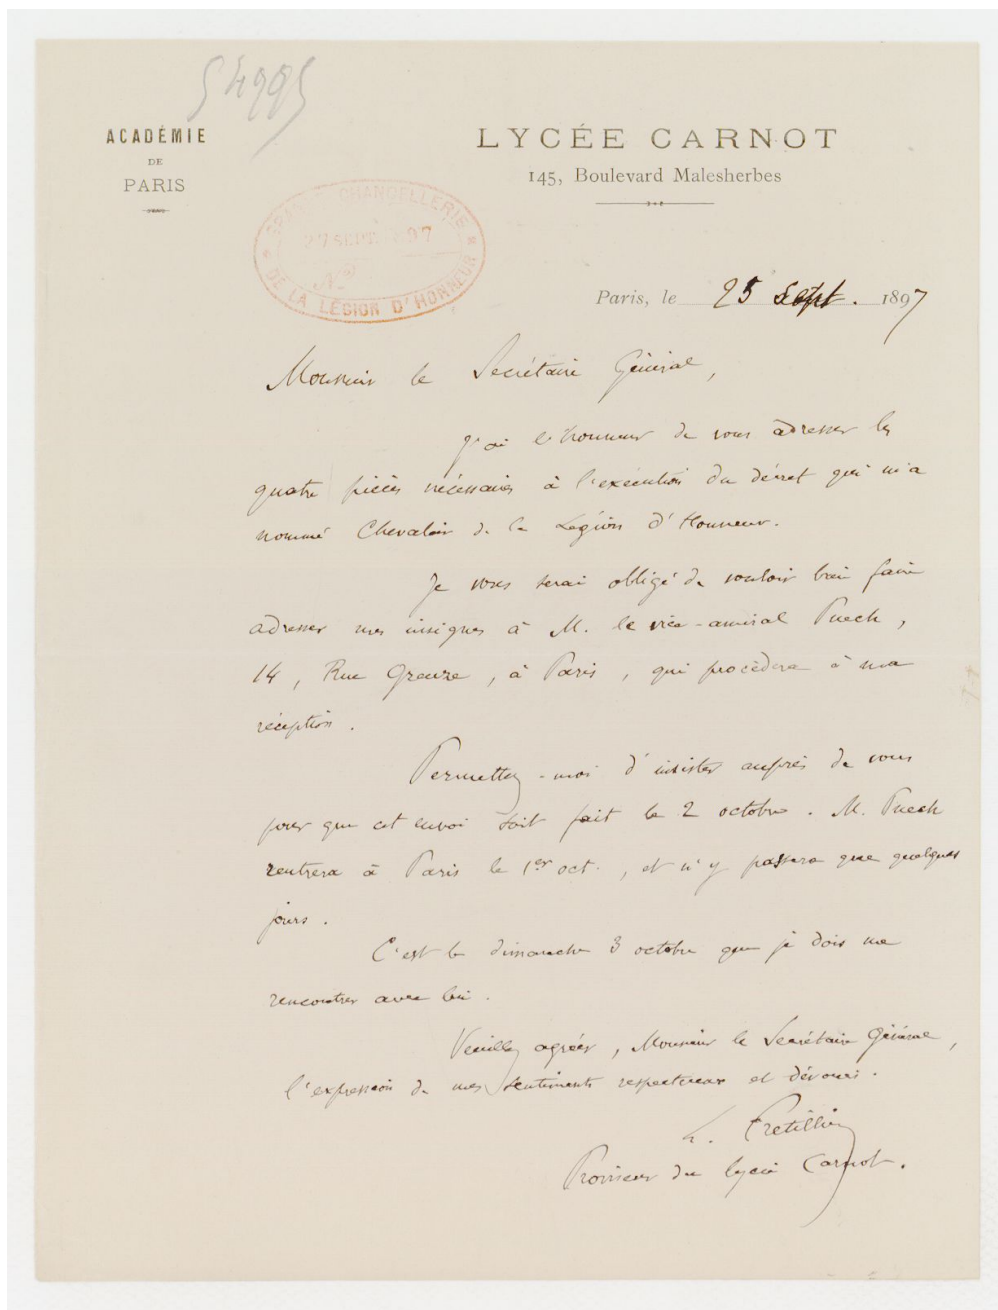 54995
ACADÉMIE
DE
PARIS
LYCÉE CARNOT
145, Boulevard Malesherbes
GRANDE CHANCELLERIE
27 SEPT. 97
No
DE LA LÉGION D'HONNEUR
Paris, le 25 Sept. 1897
Monsieur le Secrétaire Général,
J'ai l'honneur de vous adresser les
quatre pièces nécessaires à l'exécution du décret qui m'a
nommé Chevalier de la Légion d'Honneur.
Je vous serai obligé de vouloir bien faire
adresser mes insignes à M. le vice-amiral Puech,
14, Rue Greuze, à Paris, qui procèdera à ma
réception.
Permettez-moi d'insister auprès de vous
pour que cet envoi soit fait le 2 octobre. M. Puech
rentrera à Paris le 1er oct., et n'y passera que quelques
jours.
C'est le dimanche 3 octobre que je dois me
rencontrer avec lui.
Veuillez agréer, Monsieur le Secrétaire Général,
l'expression de mes sentiments respectueux et dévoués.
Proviseur du lycée Carnot.